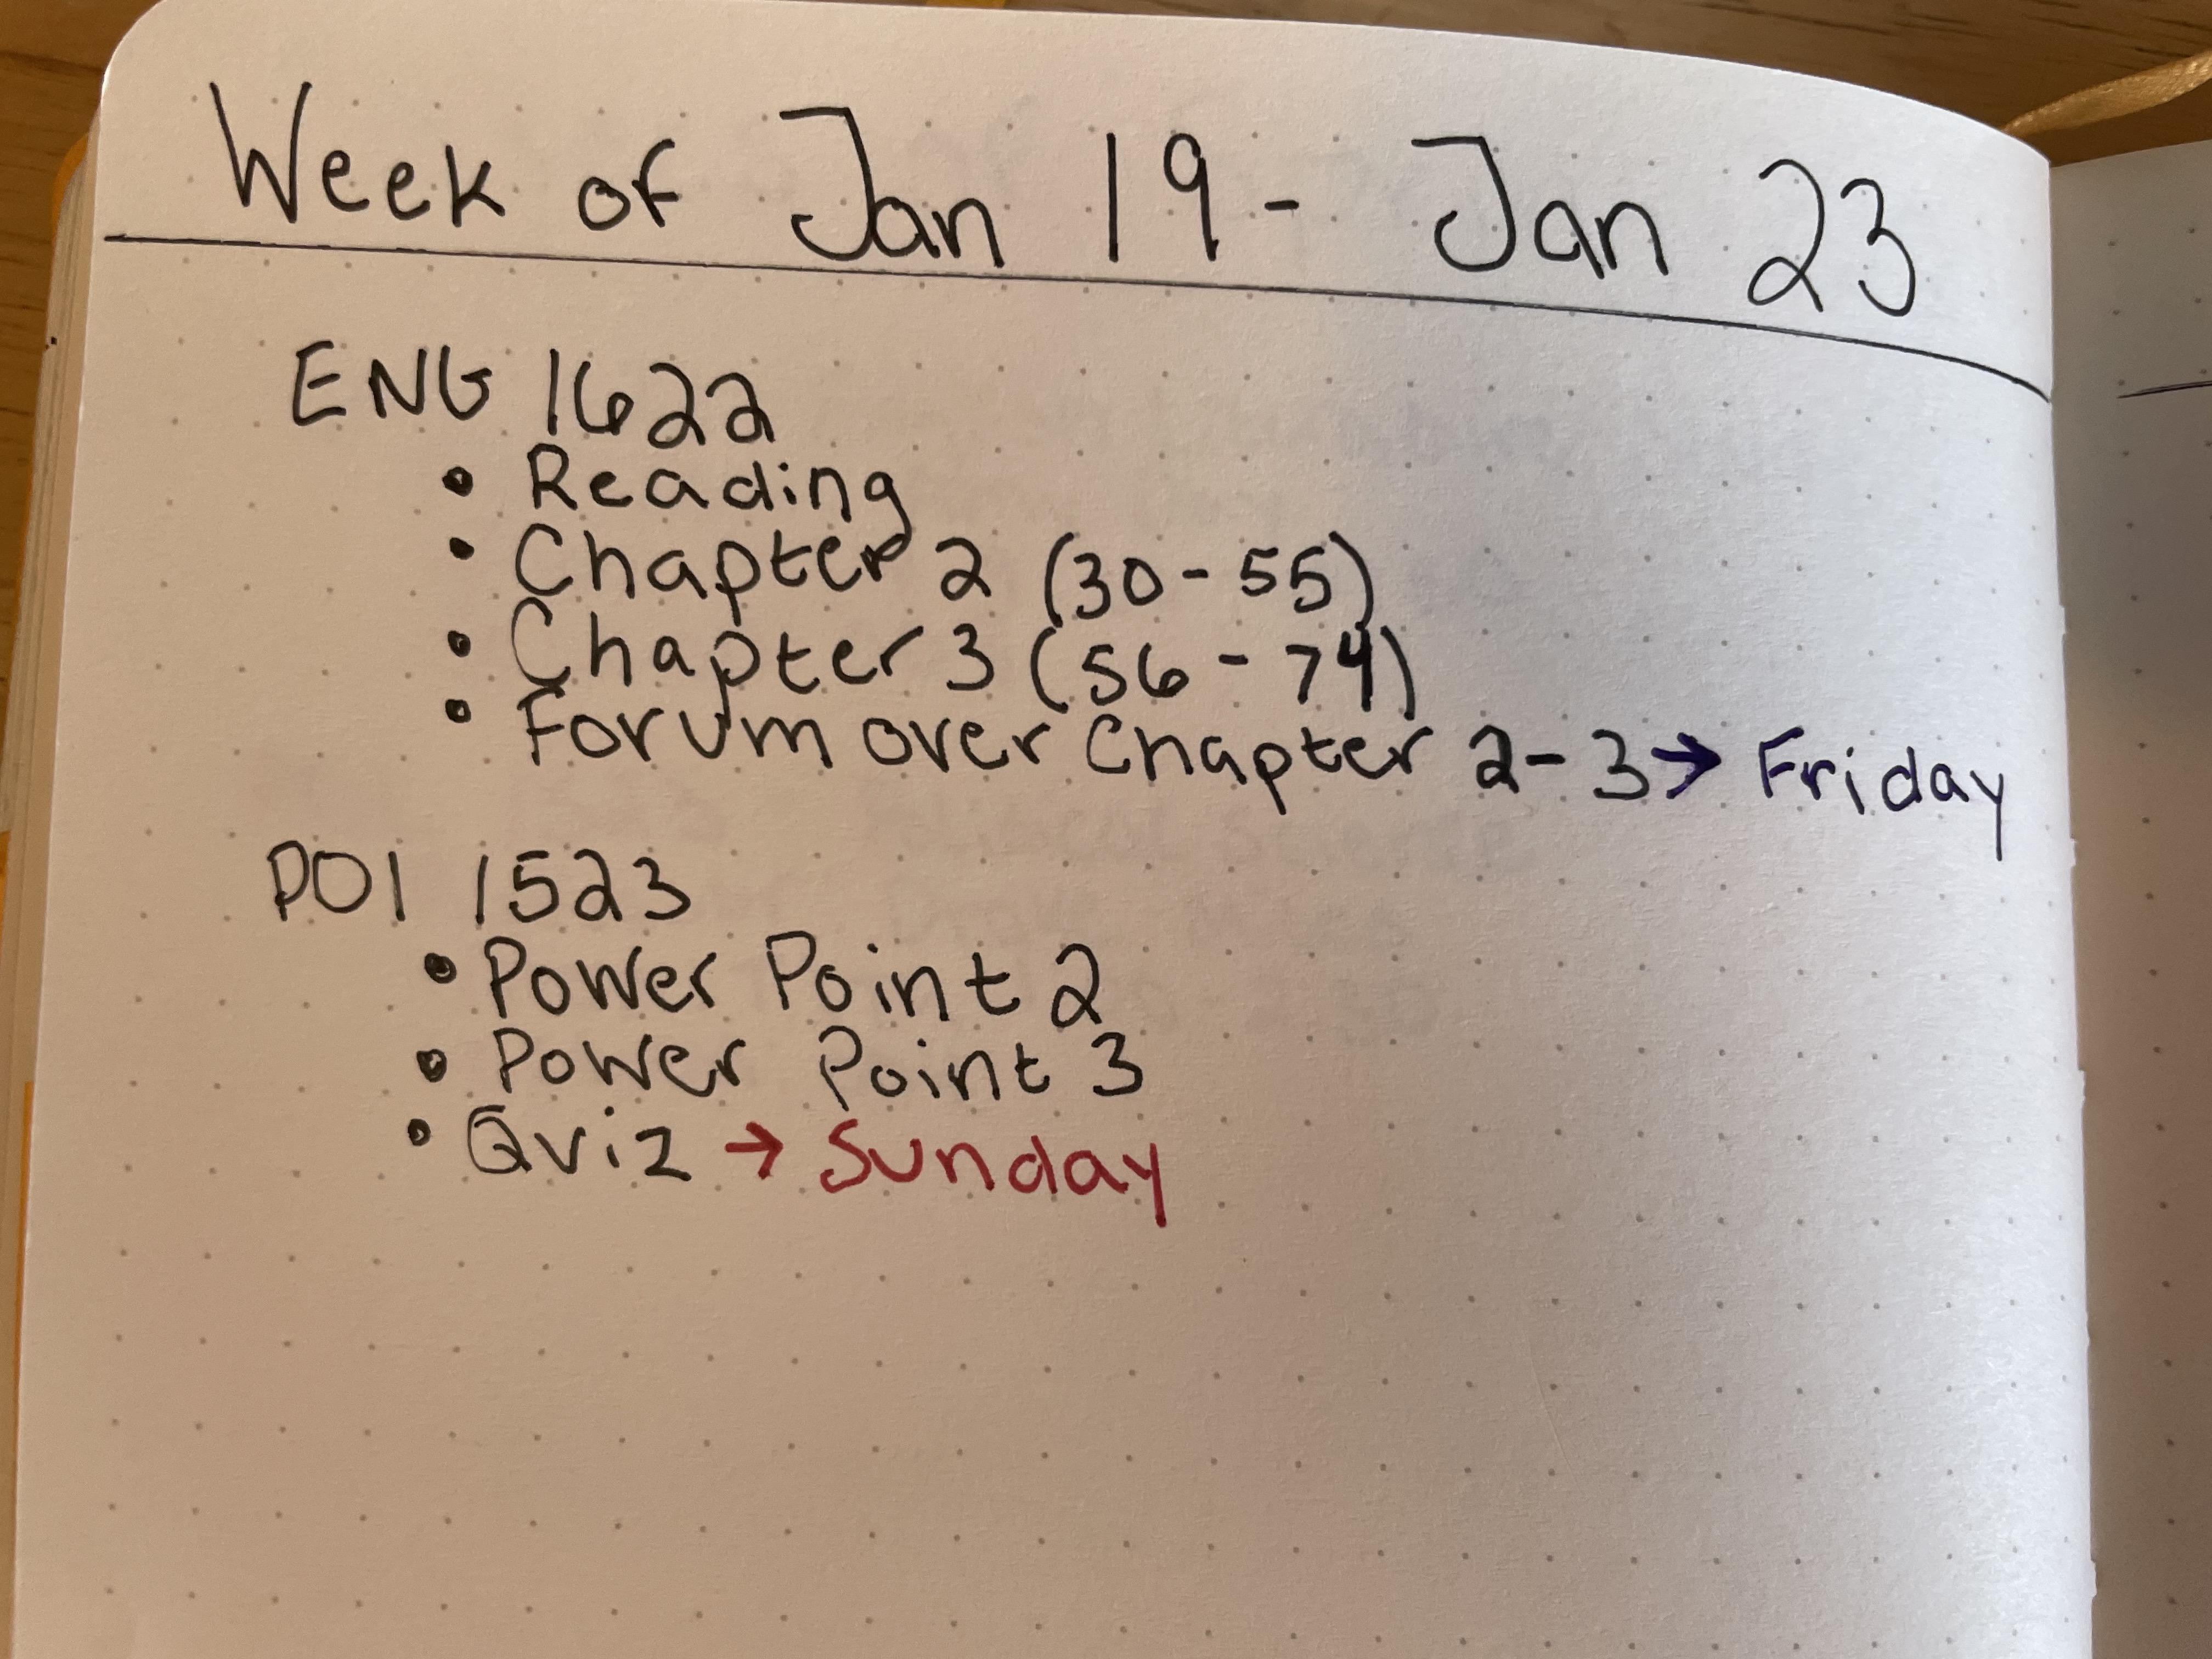 Week of Jan 19 - Jan 23
ENG 1622
• Reading
• Chapter 2 (30-55)
• Chapter 3 (56-74)
• Forum over Chapter 2-3 → Friday
POI 1523
• Power Point 2
• Power Point 3
• Quiz → Sunday